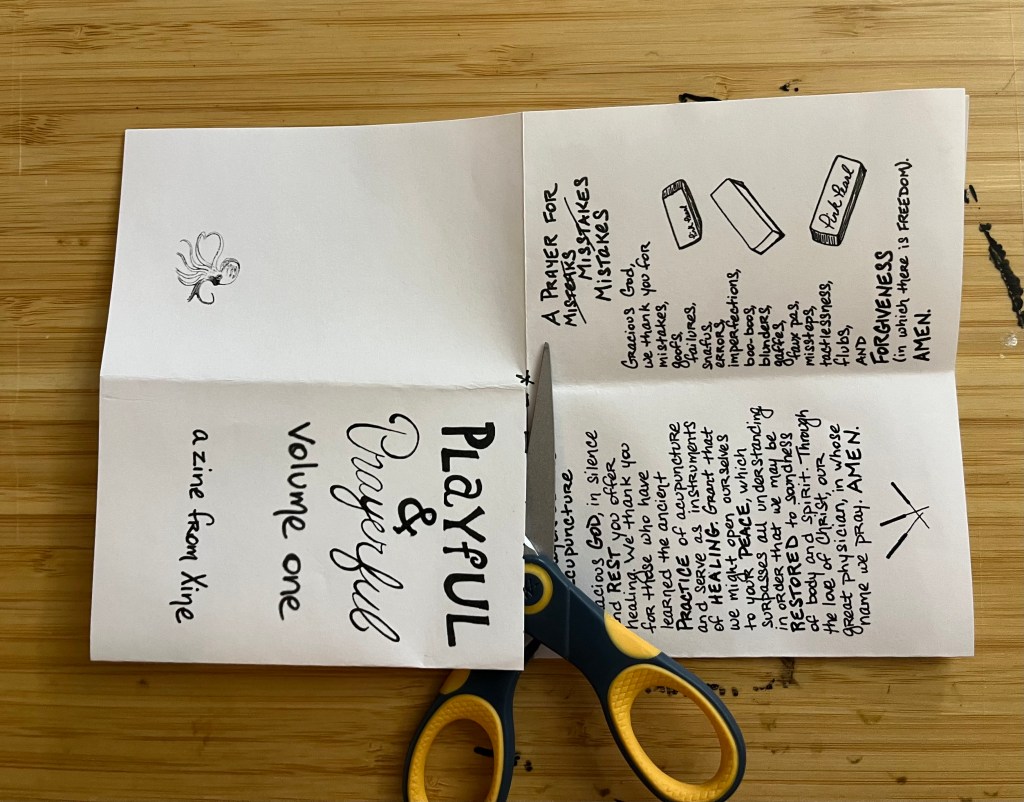 PLAYFUL
&
Prayerful
Volume one
a zine from Xine
cupuncture
acious GOD, in silence
nd REST you offer
healing. We thank you
for those who have
learned the ancient
PRACTICE of acupuncture
and serve as instruments
of HEALING. Grant that
we might open ourselves
to your PEACE, which
surpasses all understanding
in order that we may be
RESTORED to soundness
of body and spirit. Through
the love of Christ, our
great physician, in whose
name we pray. AMEN.
A PRAYER FOR
MISTEAKS MISSTAKES
MISTAKES
Gracious God,
we thank you for
mistakes,
goofs,
failures,
snafus,
errors,
imperfections,
boo-boos,
blunders,
gaffes,
faux pas,
missteps,
tactlessness,
flubs,
AND
FORGIVENESS
(in which there is FREEDOM).
AMEN.
Pink Pearl